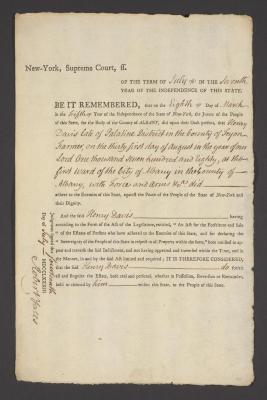 New-York, Supreme Court, ss.
OF THE TERM OF July IN THE Seventh
YEAR OF THE INDEPENDENCE OF THIS STATE.
BE IT REMEMBERED, that on the Eighth Day of March
in the fifth Year of the Independence of the State of New-York, the Jurors of the People
of this State, for the Body of the County of ALBANY, did upon their Oath present, that Henry
Davis late of Palatine District in the County of Tryon
Farmer, on the thirty first day of August in the year of our
Lord One thousand Seven hundred and Eighty, at the
first Ward of the City of Albany in the County of
Albany, with Force and Arms &c. did
adhere to the Enemies of this State, against the Peace of the People of the State of New-York and
their Dignity.
And the said Henry Davis having
according to the Form of the Act of the Legislature, entitled, "An Act for the Forfeiture and Sale
"of the Estates of Persons who have adhered to the Enemies of this State, and for declaring the
"Sovereignty of the People of this State in respect to all Property within the same," been notified to appear and traverse the said Indictment, and not having appeared and traversed within the Time, and in
the Manner, in and by the said Act limited and required; IT IS THEREFORE CONSIDERED,
that the said Henry Davis do forfeit
all and singular the Estate, both real and personal, whether in Possession, Reversion or Remainder,
held or claimed by him within this State, to the People of this State.
Judgment signed this fourteenth
Day of July MDCCLXXXIII.
Robert Yates